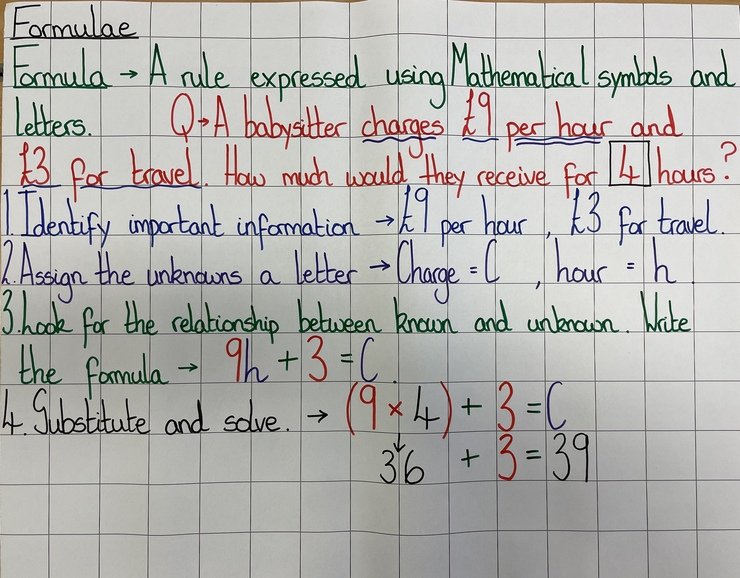 Formulae
Formula → A rule expressed using Mathematical symbols and
letters. Q→A babysitter charges £9 per hour and
£3 for travel. How much would they receive for 4 hours?
1. Identify important information → £9 per hour, £3 for travel.
2. Assign the unknowns a letter → Charge = C, hour = h.
3. Look for the relationship between known and unknown. Write
the formula → 9h + 3 = C.
4. Substitute and solve. → (9 × 4) + 3 = C
↓
36 + 3 = 39